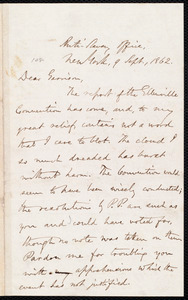 Anti-Slavery Office,
New York, 9 Sept., 1862.
Dear Garrison,
The report of the Ellenville
Convention has come, and, to my
great relief, contains not a word
that I care to blot. The cloud I
so much dreaded has burst
without harm. The Convention would
to have been wisely conducted,
the resolutions by P.P. are such as
you and could have voted for,
though no vote was taken on them
Pardon me for troubling you
with my apprehensions which the
event has not justified.